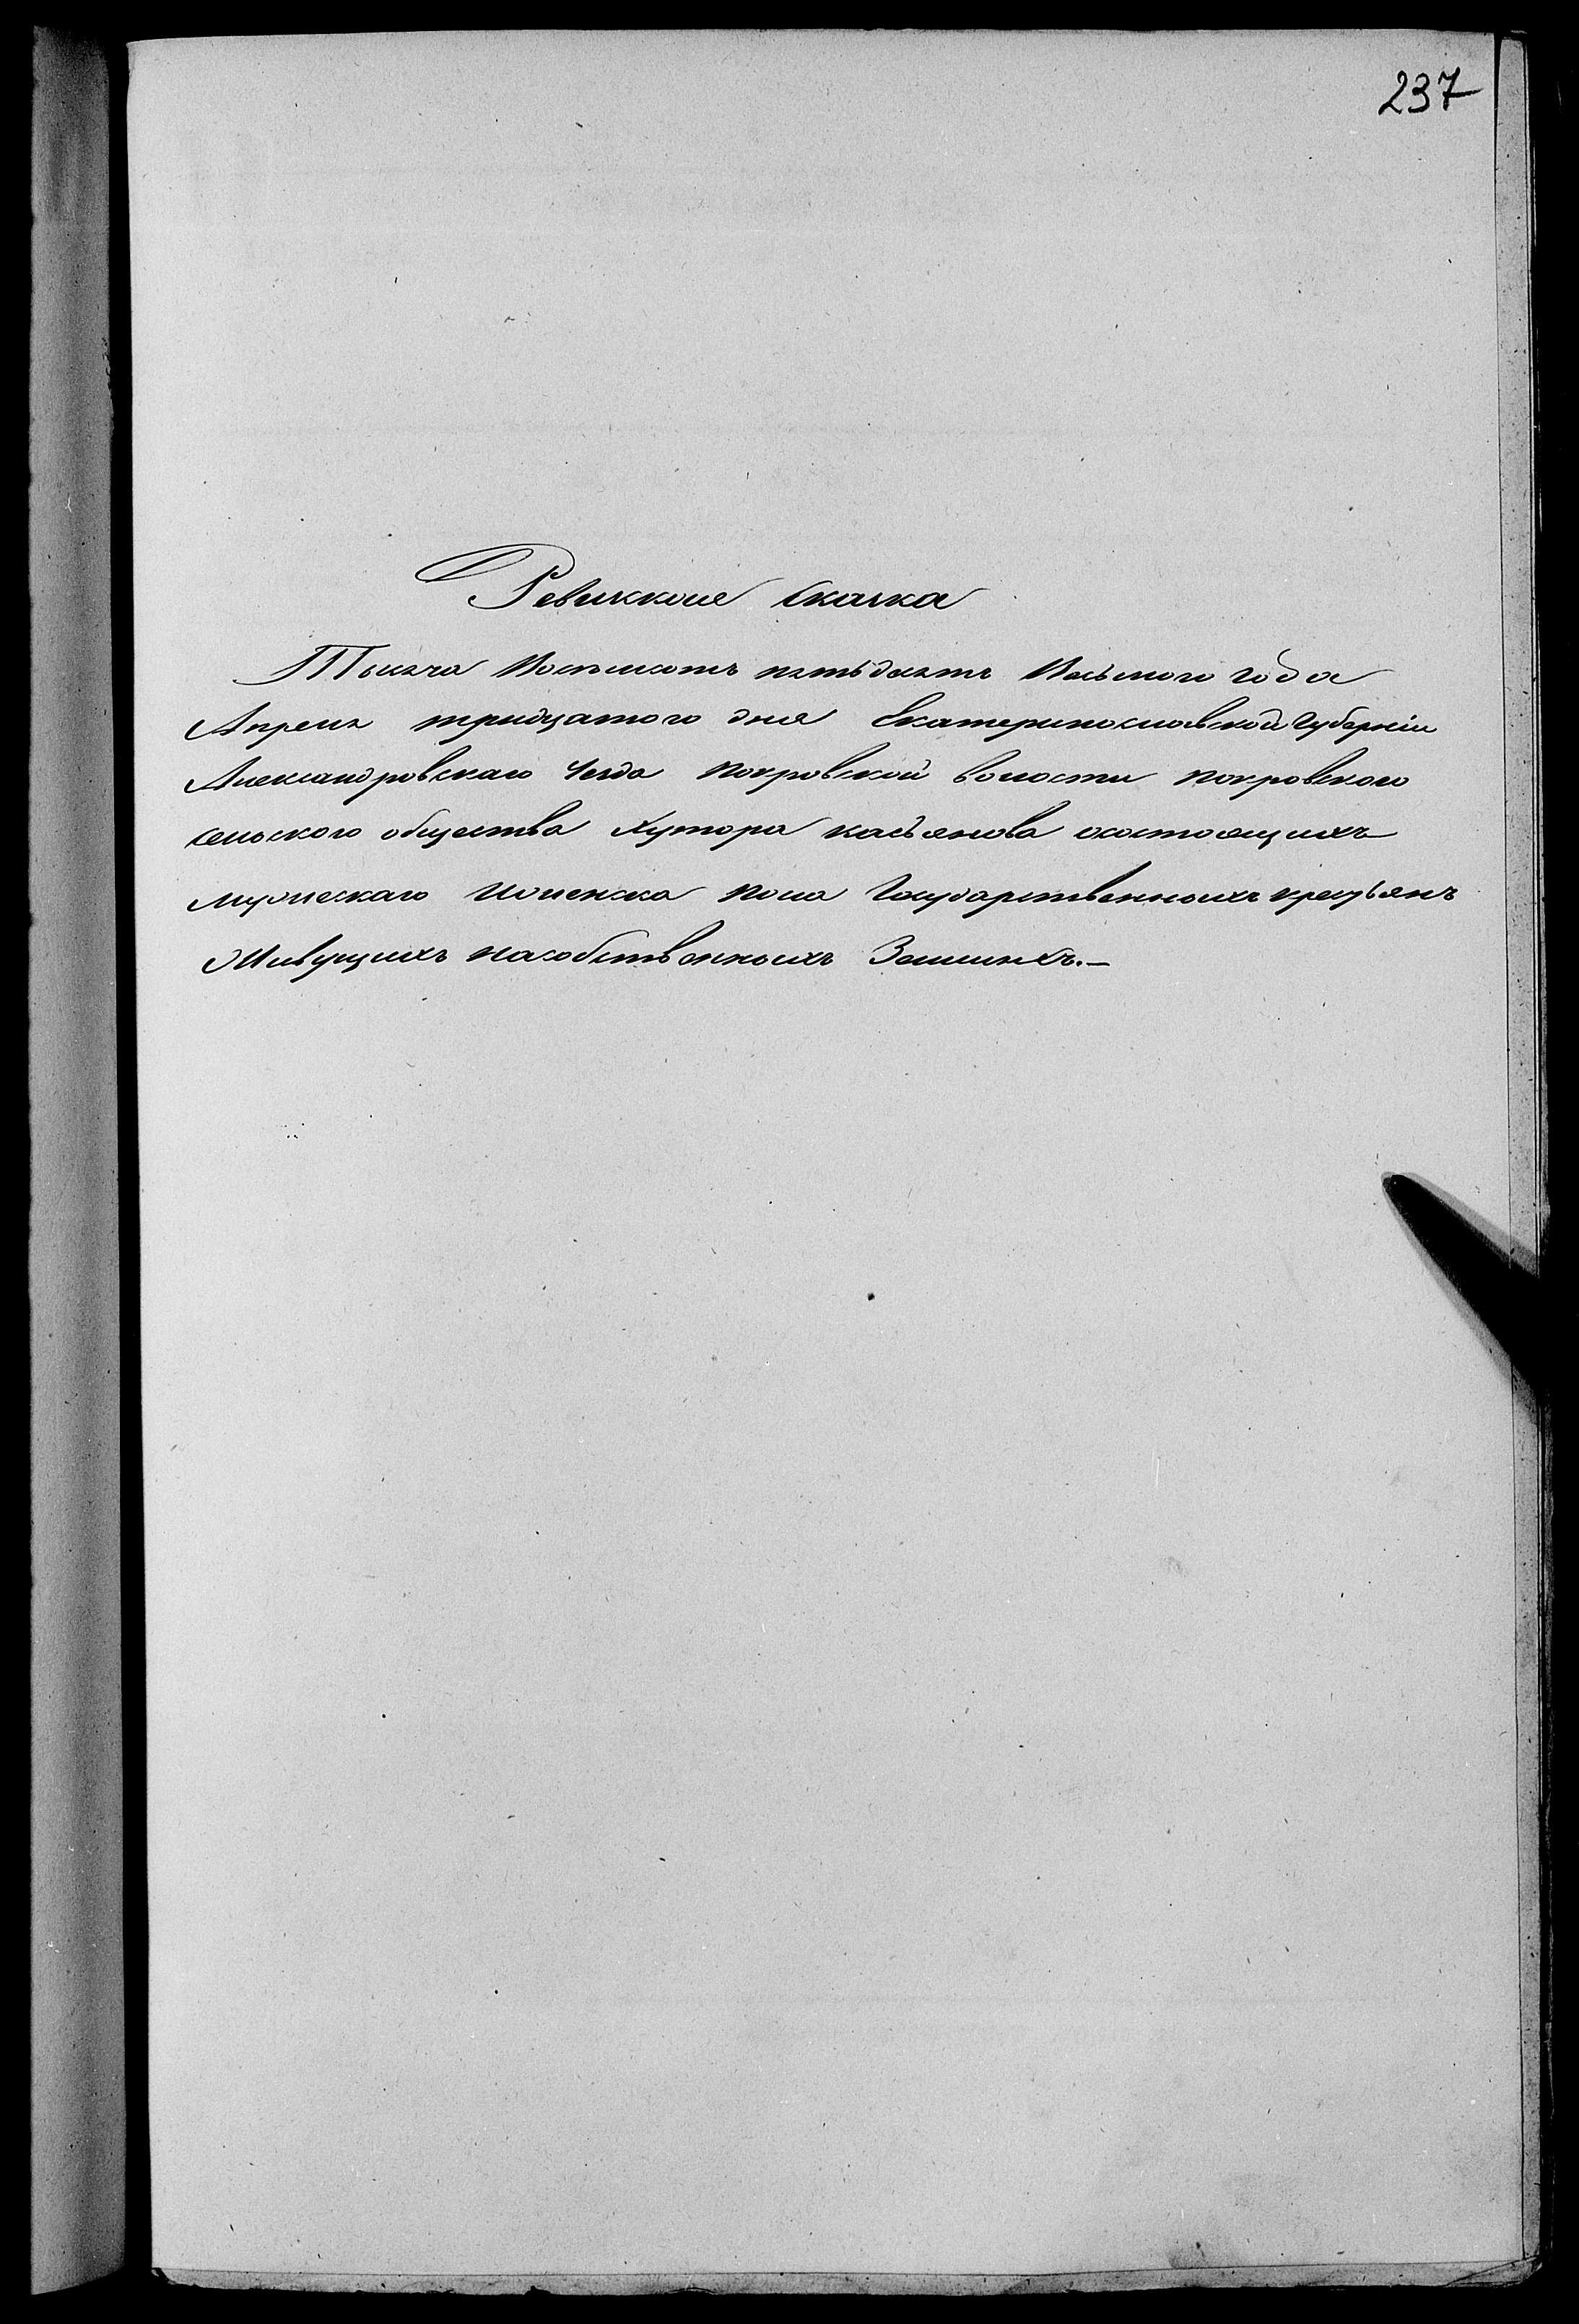 237
Ревизкоие Сказка
Тысяча Восемсотъ пятьдесятъ Восьмого года
Апреля тридцатого дня Екатеринославской Губерніи
Александровскаго Уезда покровской волости покровского
сельского общества Хутора касьянова осостоящихъ
мужескаго иженска пола Государственныхъ крестьянъ
Живущихъ насобственныхъ Земляхъ.—